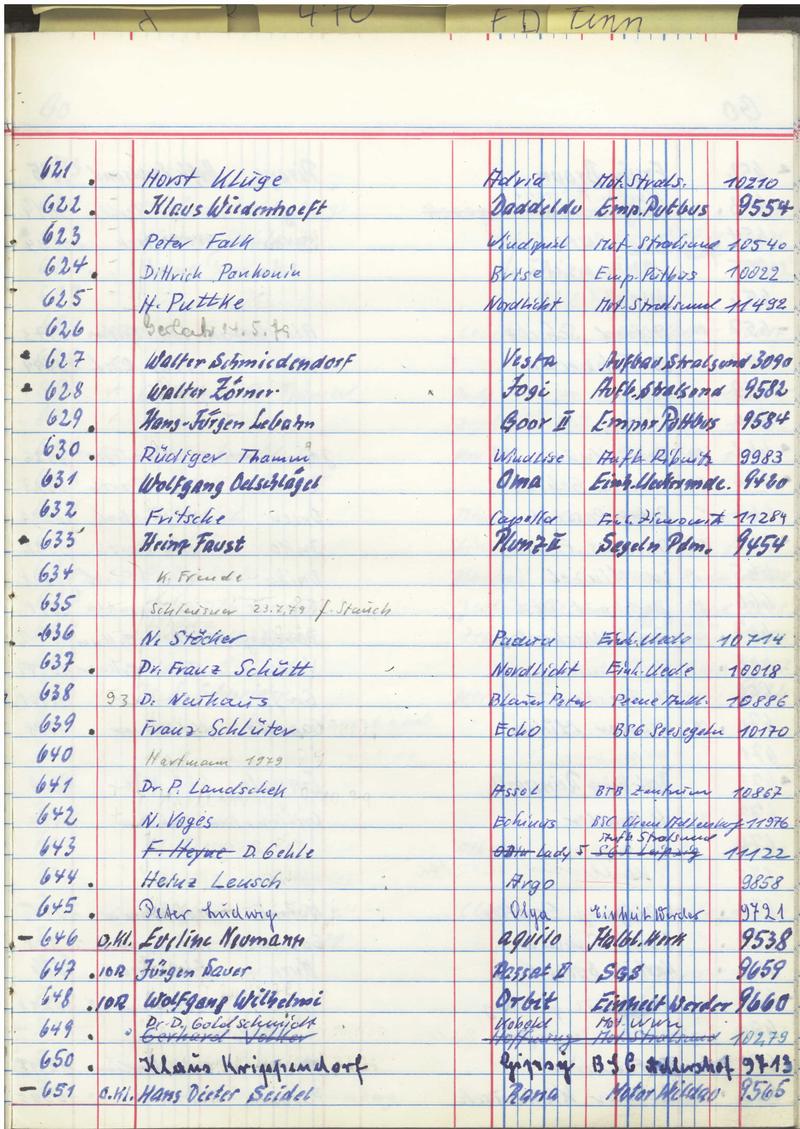 470 FD Finn
621 . Horst Kluge Adria Mot. Strals. 10210
622 . Klaus Wiedenhoeft Daddeldu Emp. Putbus 9554
623 Peter Falk Windspiel Mot. Stralsund 10540
624 . Dittrich Pankonin Brise Emp. Putbus 10022
625 H. Puttke Nordlicht Mot. Stralsund 11492
626 Gerlach 14.5.79
627 Walter Schmiedendorf Vesta Aufbau Stralsund 3090
628 Walter Zörner Jogi Aufb. Stralsund 9582
629 . Hans-Jürgen Lebahn Goor II Empor Putbus 9584
630 . Rüdiger Thamm Windlise Aufb. Ribnitz 9983
631 Wolfgang Oelschlägel Oma Einh. Uekermde. 9460
632 Fritsche Capella Einh. Zinnowitz 11284
633 Heinz Faust Plunz II Segeln Pdm. 9454
634 K. Freude
635 Schleusner 23.7.79 f. Stauch
636 N. Stöcker Padua Einh. Uede 10714
637 . Dr. Franz Schütt Nordlicht Einh. Uede 10018
638 93 D. Neuhaus Blauer Peter Peene Ankl. 10886
639 . Franz Schlüter Echo BSG Seesegeln 10170
640 Hartmann 1979
641 Dr. P. Landschek Assol BTB Zentrum 10867
642 N. Voges Echinus BSC 11976
643 F. Heyne D. Gehle Lady 5 Aufb Stralsund SGS Leipzig 11122
644 . Heinz Leusch Argo 9858
645 . Peter Ludwig Olga Einheit Werder 9721
– 646 o.Kl. Eveline Neumann aquilo Halbl. Werk 9538
647 . 10R Jürgen Sauer Passat II SGS 9659
648 . 10R Wolfgang Wilhelmi Orbit Einheit Werder 9660
649 Dr. D. Goldschmidt Kobold Mot. WMW
Gerhard Hoffnung Mot Stralsund 10279
650 . Klaus Krippendorf Gipsy BSG Adlershof 9713
– 651 o.Kl. Hans Dieter Seidel Rana Motor Wildau 9565